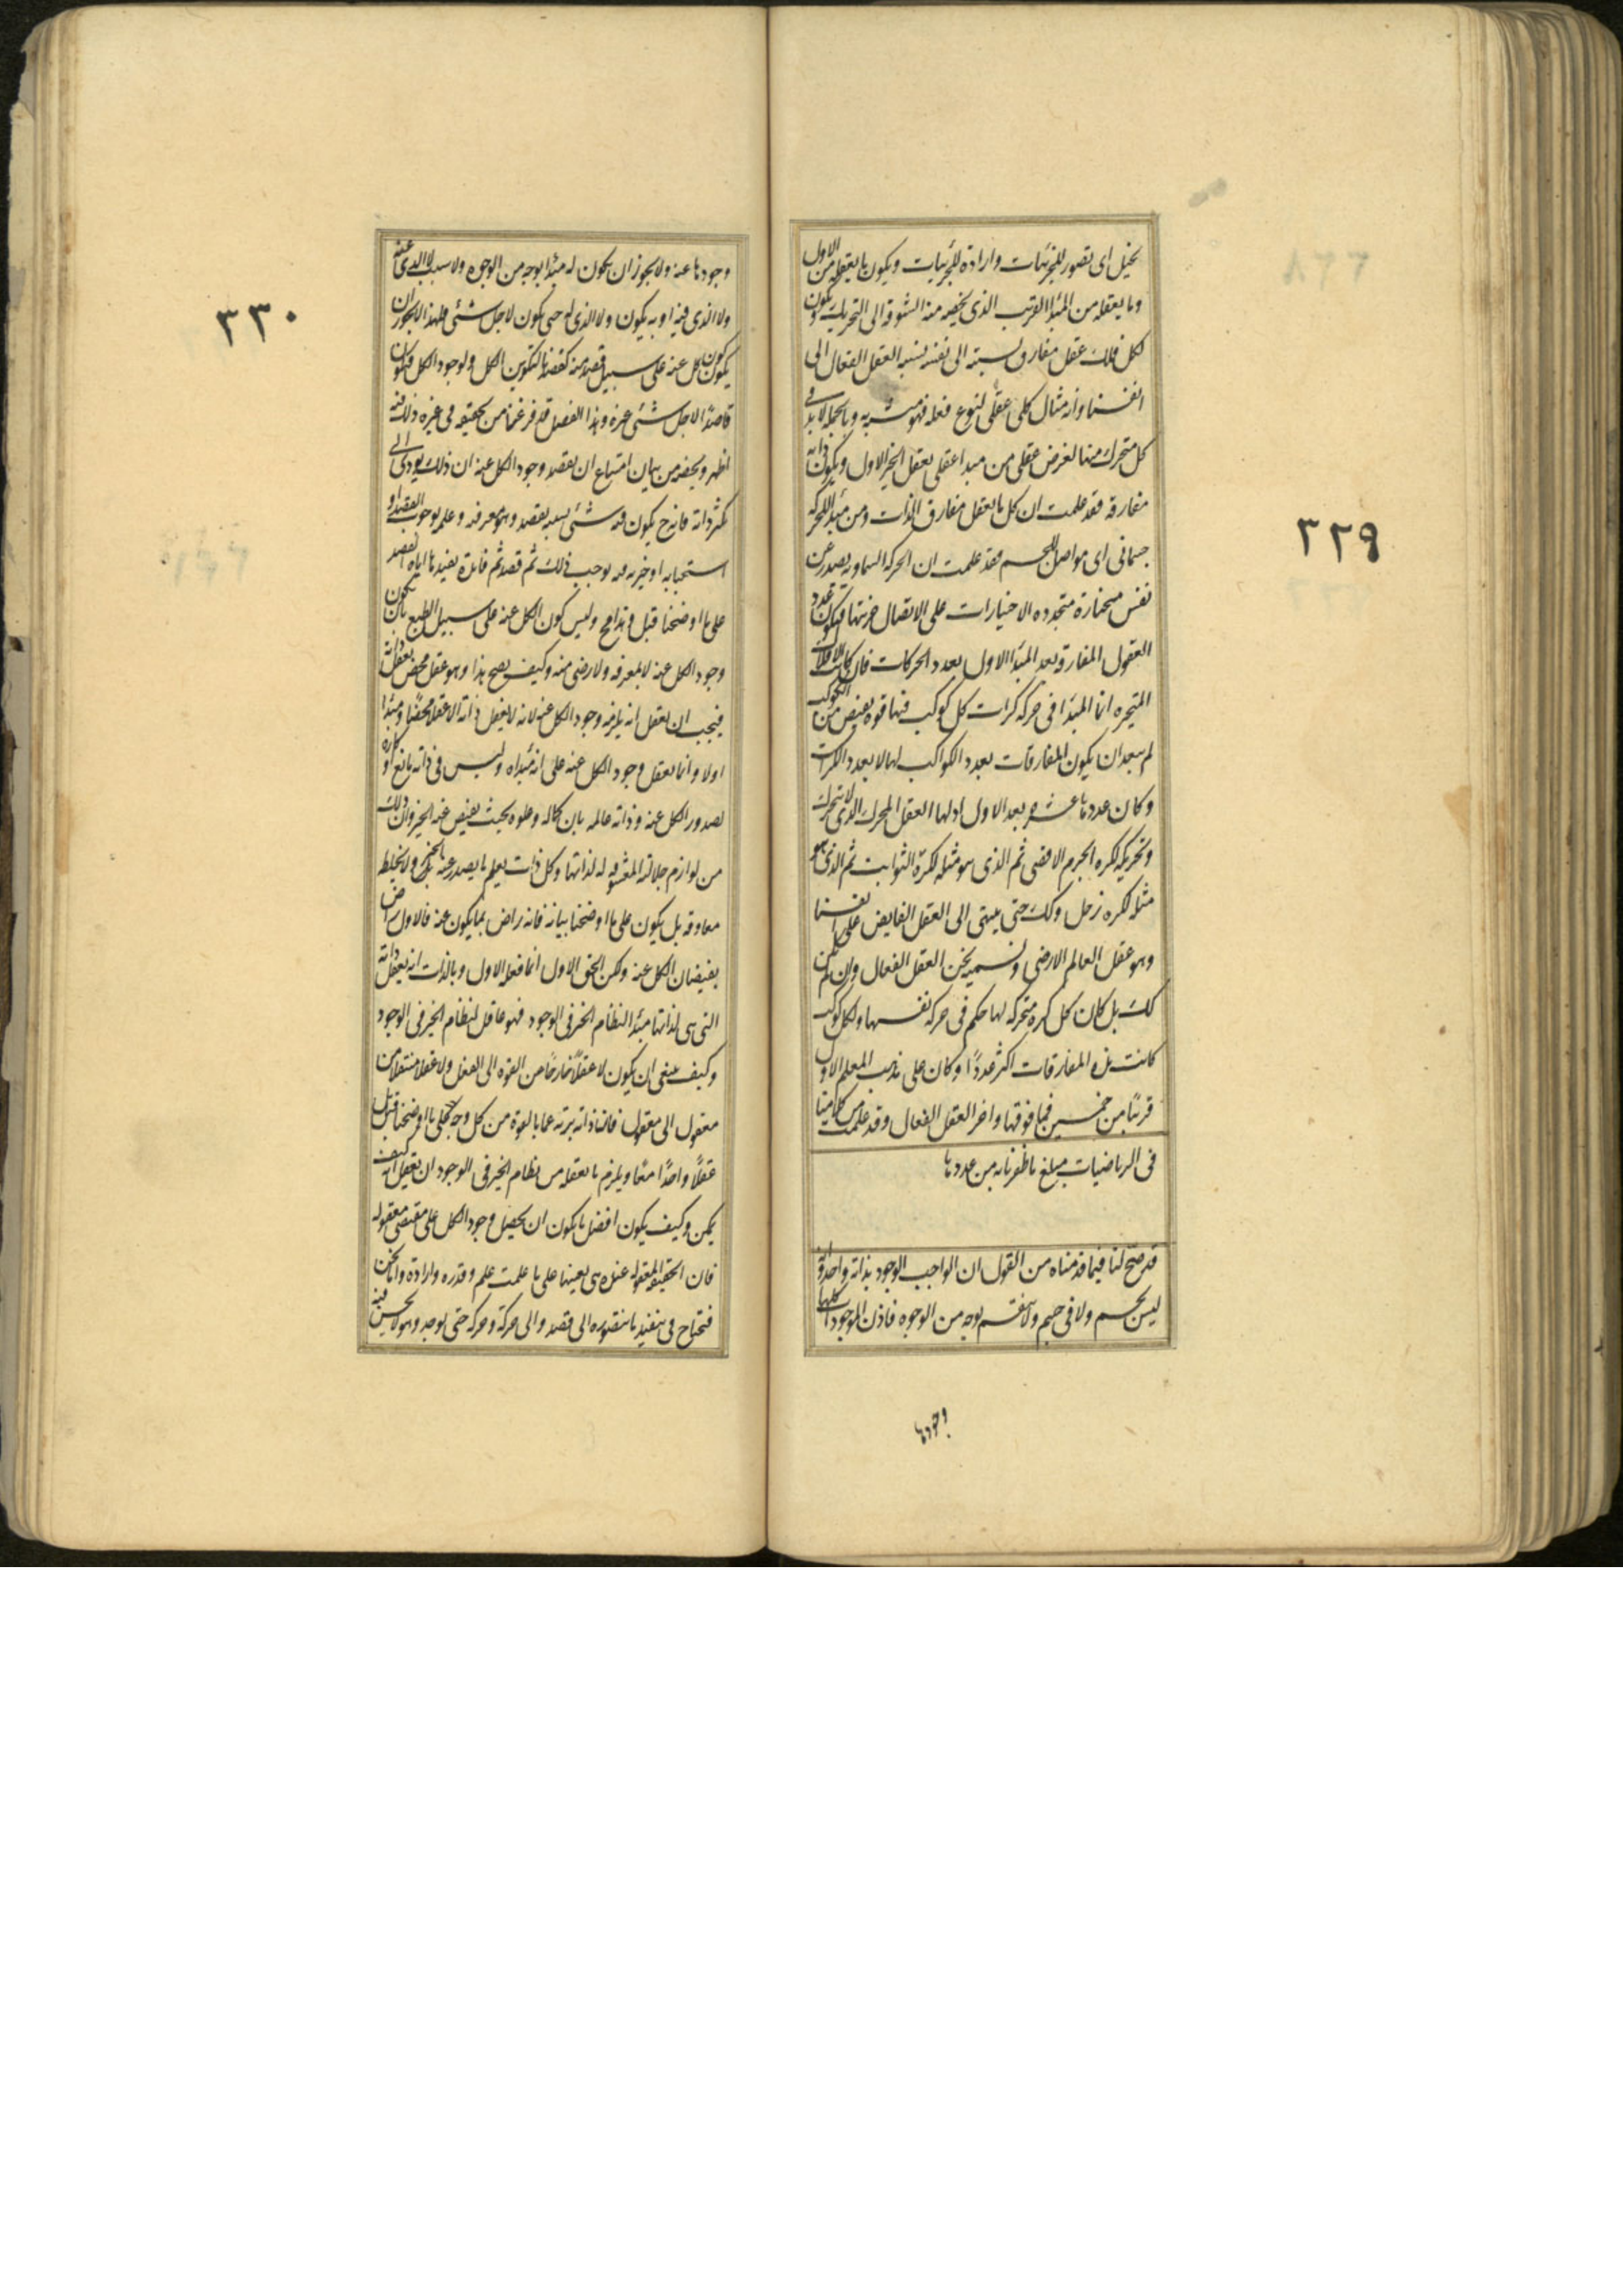 ٣٢٩
تخيل اى تصور للجزئيات وارادة للجزئيات ويكون ما يعقله من الاول
وما يعقله من المبدا القريب الذى يخصه منه الشوقة الى التحريك ويكون
لكل فلك عقل مفارق نسبته الى نفسه نسبه العقل الفعال الى
انفسنا وانه مثال كلى عقلى لنوع فعله فهو يتشبه به وبالجمله لا بد فى
كل متحرك منها لغرض عقلى من مبدا عقلى يعقل الخير الاول ويكون ذاته
مفارقة فقد علمت ان كل ما يعقل مفارق الذات ومن مبدا للحركه
جسمانى اى مواصل للجسم فقد علمت ان الحركه السماويه يصدر عن
نفس مختارة متجدده الاختيارات على الاتصال جزئيتها فيكون عدد
العقول المفارقه بعد المبدا الاول بعدد الحركات فان كانت الافلاك
المتحيره انما المبدا فى حركه كرات كل كوكب فيها قوه يفيض من الكوكب
لم يبعد ان يكون المفارقات بعدد الكواكب لها لا بعدد الكرات
وكان عددها عشره بعد الاول اولها العقل المحرك الذى لا يتحرك
وتحريكه لكره الجرم الاقصى ثم الذى هو مثله لكرة الثوابت ثم الذى هو
مثله لكره زحل وكك حتى ينتهى الى العقل الفايض على انفسنا
وهو عقل العالم الارضى ونسميه نحن العقل الفعال وان لم يكن
كك بل كان كل كره متحركه لها حكم فى حركه نفسها ولكل كوكب
كانت هذه المفارقات اكثر عددًا وكان على مذهب المعلم الاول
قريبًا من خمسين فما فوقها واخر العقل الفعال وقد علمت من كلامنا
فى الرياضيات مبلغ ما ظفرنا به من عددها
قد صح لنا فيما قدمناه من القول ان الواجب الوجود بذاته واحد وانه
ليس بجسم ولا فى جسم ولا ينقسم بوجه من الوجوه فاذن الموجودات كلها
وجودها
٣٣٠
وجودها عنه ولا يجوز ان يكون له مبدا بوجه من الوجوه ولا سبب لا الذى عنه
ولا الذى فيه او به يكون ولا الذى له حتى يكون لاجل شئى فلهذا لا يجوز ان
يكون كون الكل عنه على سبيل قصد منه كقصدنا لتكوين الكل ولوجود الكل فيكون
قاصدًا لاجل شئى غيره وهذا الفصل قد فرغنا من تحقيقه فى غيره وذلك فيه
اظهر ويخصه من بيان امتناع ان يقصد وجود الكل عنه ان ذلك يودى الى
تكثر ذاته فانه ح يكون فيه شئى بسببه يقصد وهو معرفته وعلمه بوجوب القصد او
استحبابه او خيريه فيه يوجب ذلك ثم قصد ثم فايدة يفيدها اياه القصد
على ما اوضحنا قبل وهذا مح وليس كون الكل عنه على سبيل الطبع بان يكون
وجود الكل عنه لا بمعرفه ولا رضى منه وكيف يصح هذا وهو عقل محض يعقل ذاته
فيجب ان يعقل انه يلزمه وجود الكل عنه لانه لا يعقل ذاته الا عقلا محضًا ومبدا
اولا وانما يعقل وجود الكل عنه على انه مبداه وليس فى ذاته مانع او كاره
لصدور الكل عنه وذاته عالمه بان كماله وعلوه بحيث يفيض عنه الخير وان ذلك
من لوازم جلالته المعشوقه له لذاتها وكل ذات يعلم ما يصدر عنه ولا يخلطه
معاوقه بل يكون على ما اوضحنا بيانه فانه راض بما يكون عنه فالاول راض
بفيضان الكل عنه ولكن الحق الاول انما فعله الاول وبالذات انه يعقل ذاته
التى هى لذاتها مبدا النظام الخير فى الوجود فهو عاقل لنظام الخير فى الوجود
وكيف ينبغى ان يكون لا عقلًا خارجًا من القوه الى الفعل ولا عقلا منتقلا من
معقول الى معقول فان ذاته بريه عما بالقوة من كل وجه على ما اوضحنا قبل
عقلًا واحدًا معًا ويلزم ما يعقله من نظام الخير فى الوجود ان يعقل انه كيف
يمكن وكيف يكون افضل ما يكون ان يحصل وجود الكل على مقتضى معقوله
فان الحقيقه المعقوله عنده هى بعينها على ما علمت علم وقدره وارادة واما نحن
فنحتاج فى تنفيذ ما نتصوره الى قصد والى حركة وحركه حتى يوجد وهو لا يحسن فيه